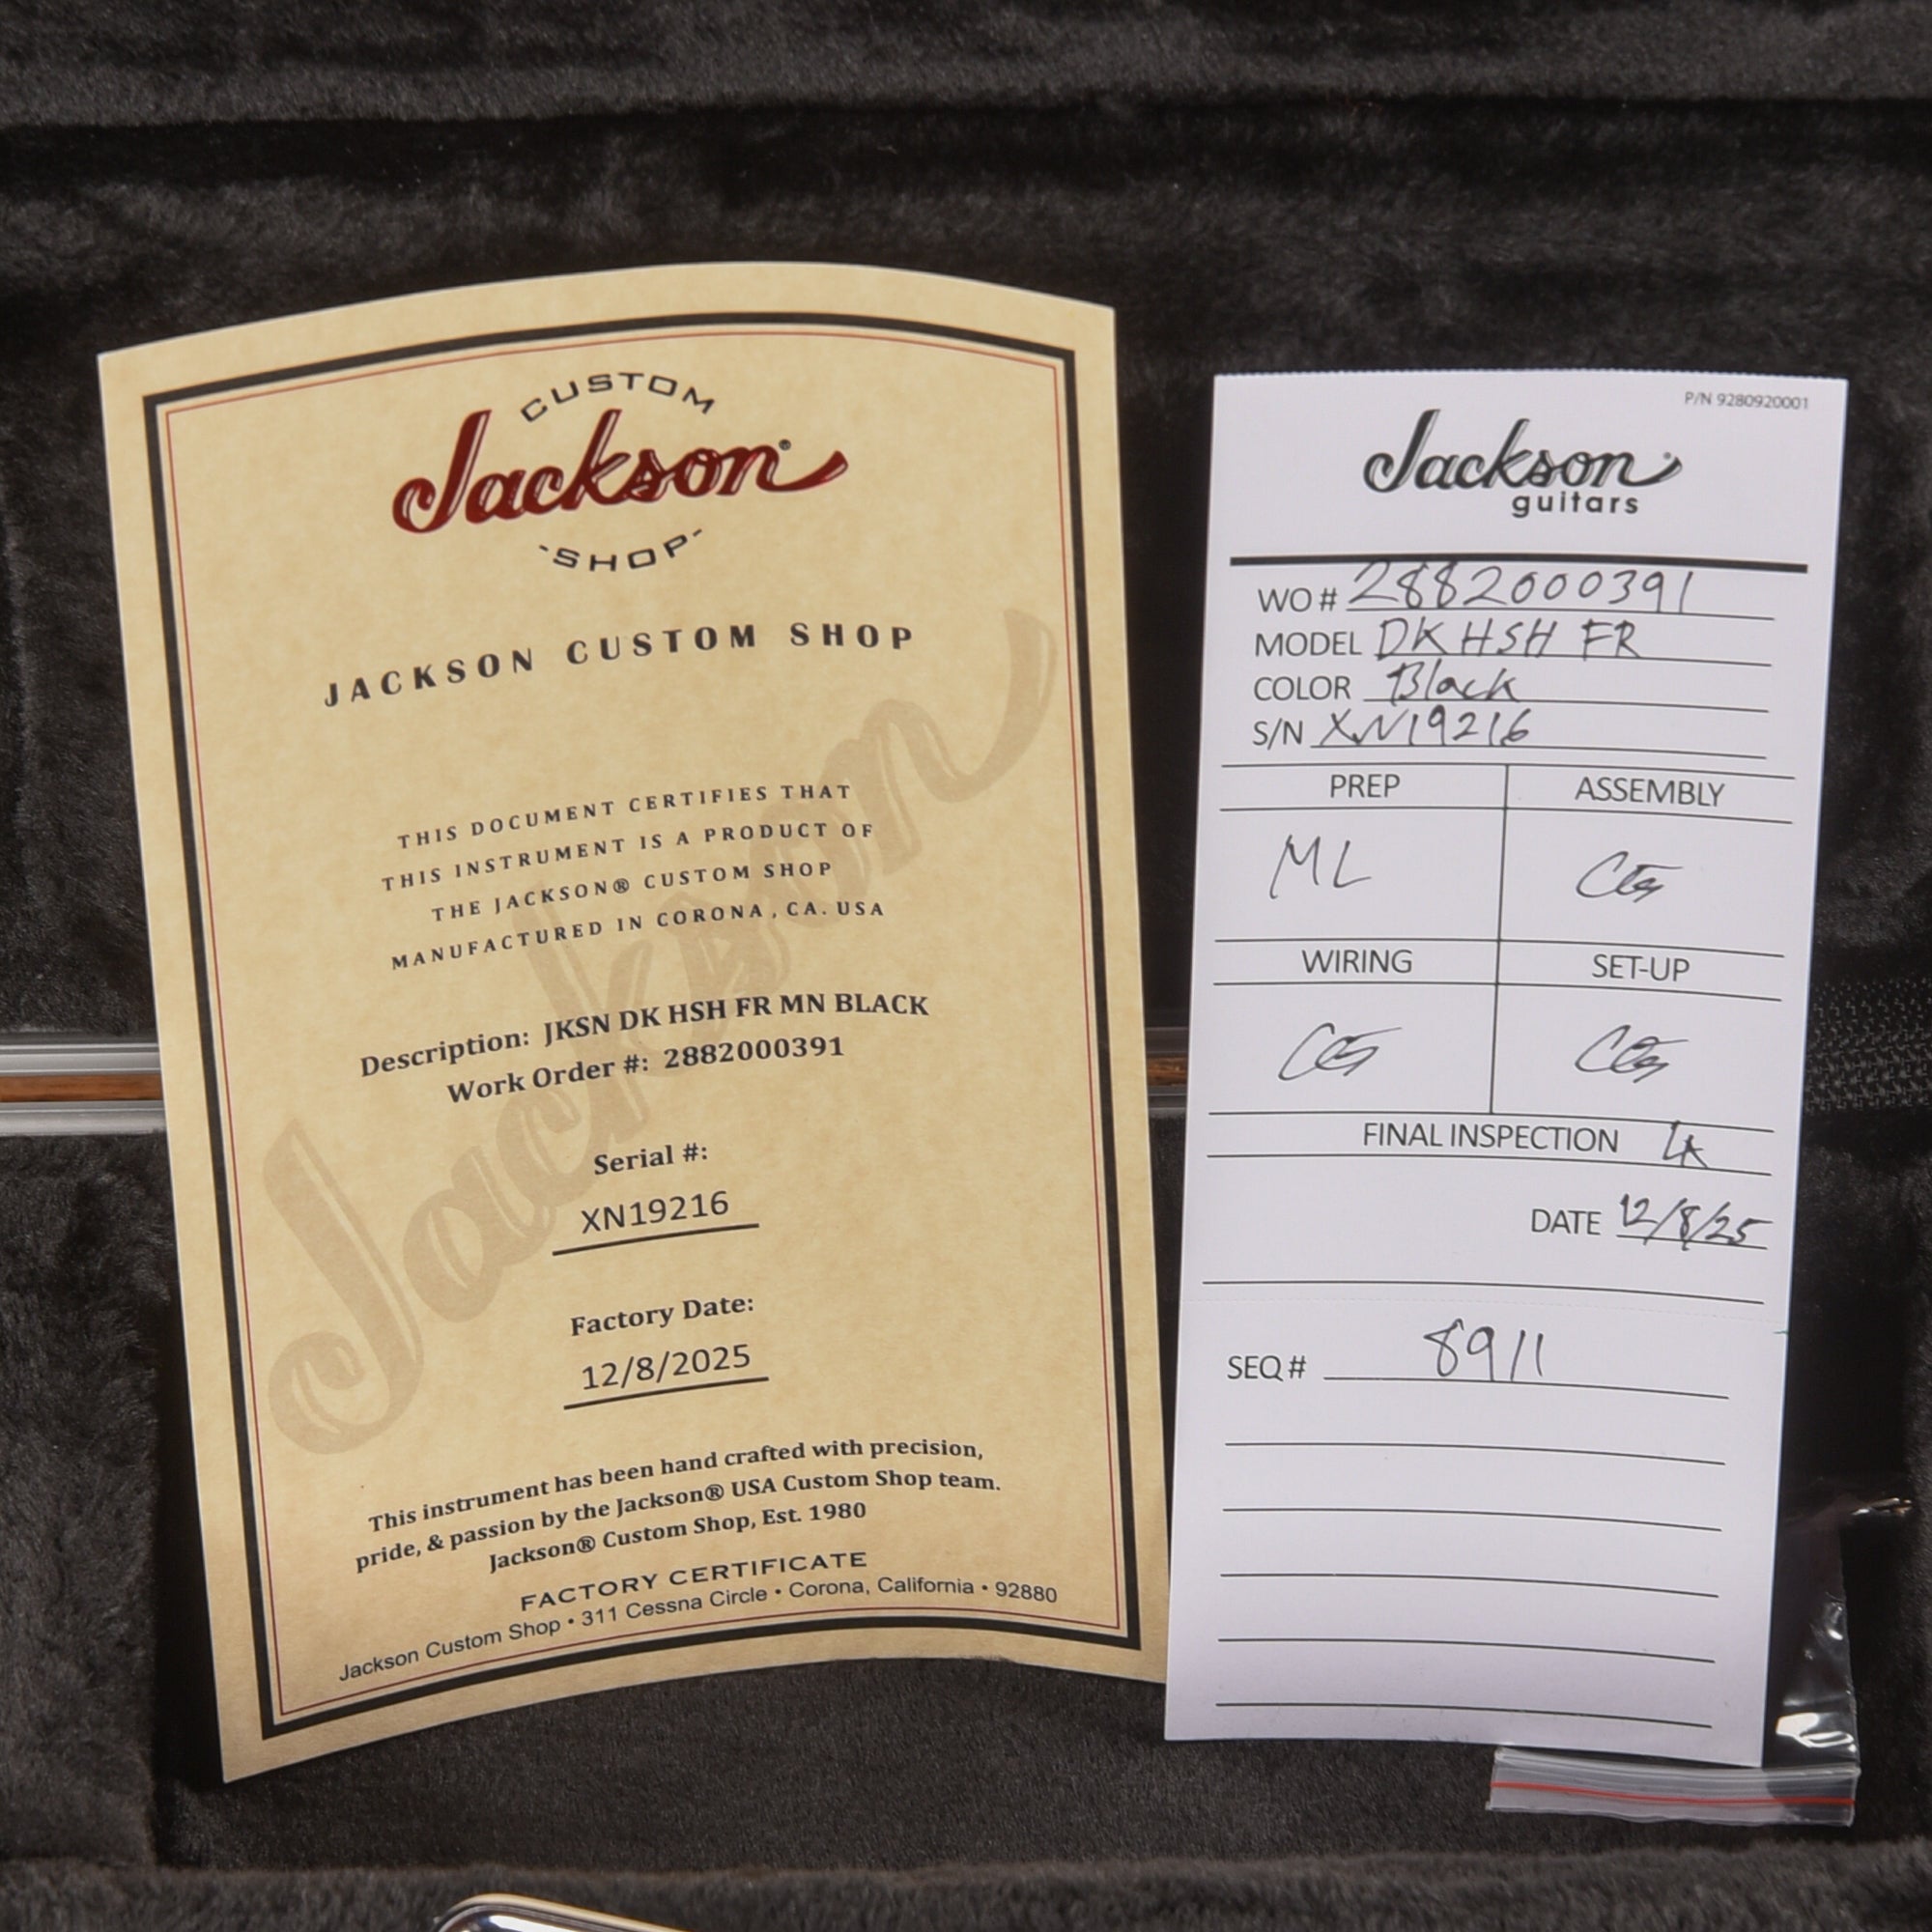 CUSTOM
Jackson®
SHOP
JACKSON CUSTOM SHOP
THIS DOCUMENT CERTIFIES THAT
THIS INSTRUMENT IS A PRODUCT OF
THE JACKSON® CUSTOM SHOP
MANUFACTURED IN CORONA, CA. USA
Jackson
Description: JKSN DK HSH FR MN BLACK
Work Order #: 2882000391
Serial #:
XN19216
Factory Date:
12/8/2025
This instrument has been hand crafted with precision,
pride, & passion by the Jackson® USA Custom Shop team.
Jackson® Custom Shop, Est. 1980
FACTORY CERTIFICATE
Jackson Custom Shop • 311 Cessna Circle • Corona, California • 92880
P/N 9280920001
Jackson®
guitars
WO# 2882000391
MODEL DK HSH FR
COLOR Black
S/N XN19216
PREP ASSEMBLY
ML
WIRING SET-UP
FINAL INSPECTION
DATE 12/8/25
SEQ# 8911